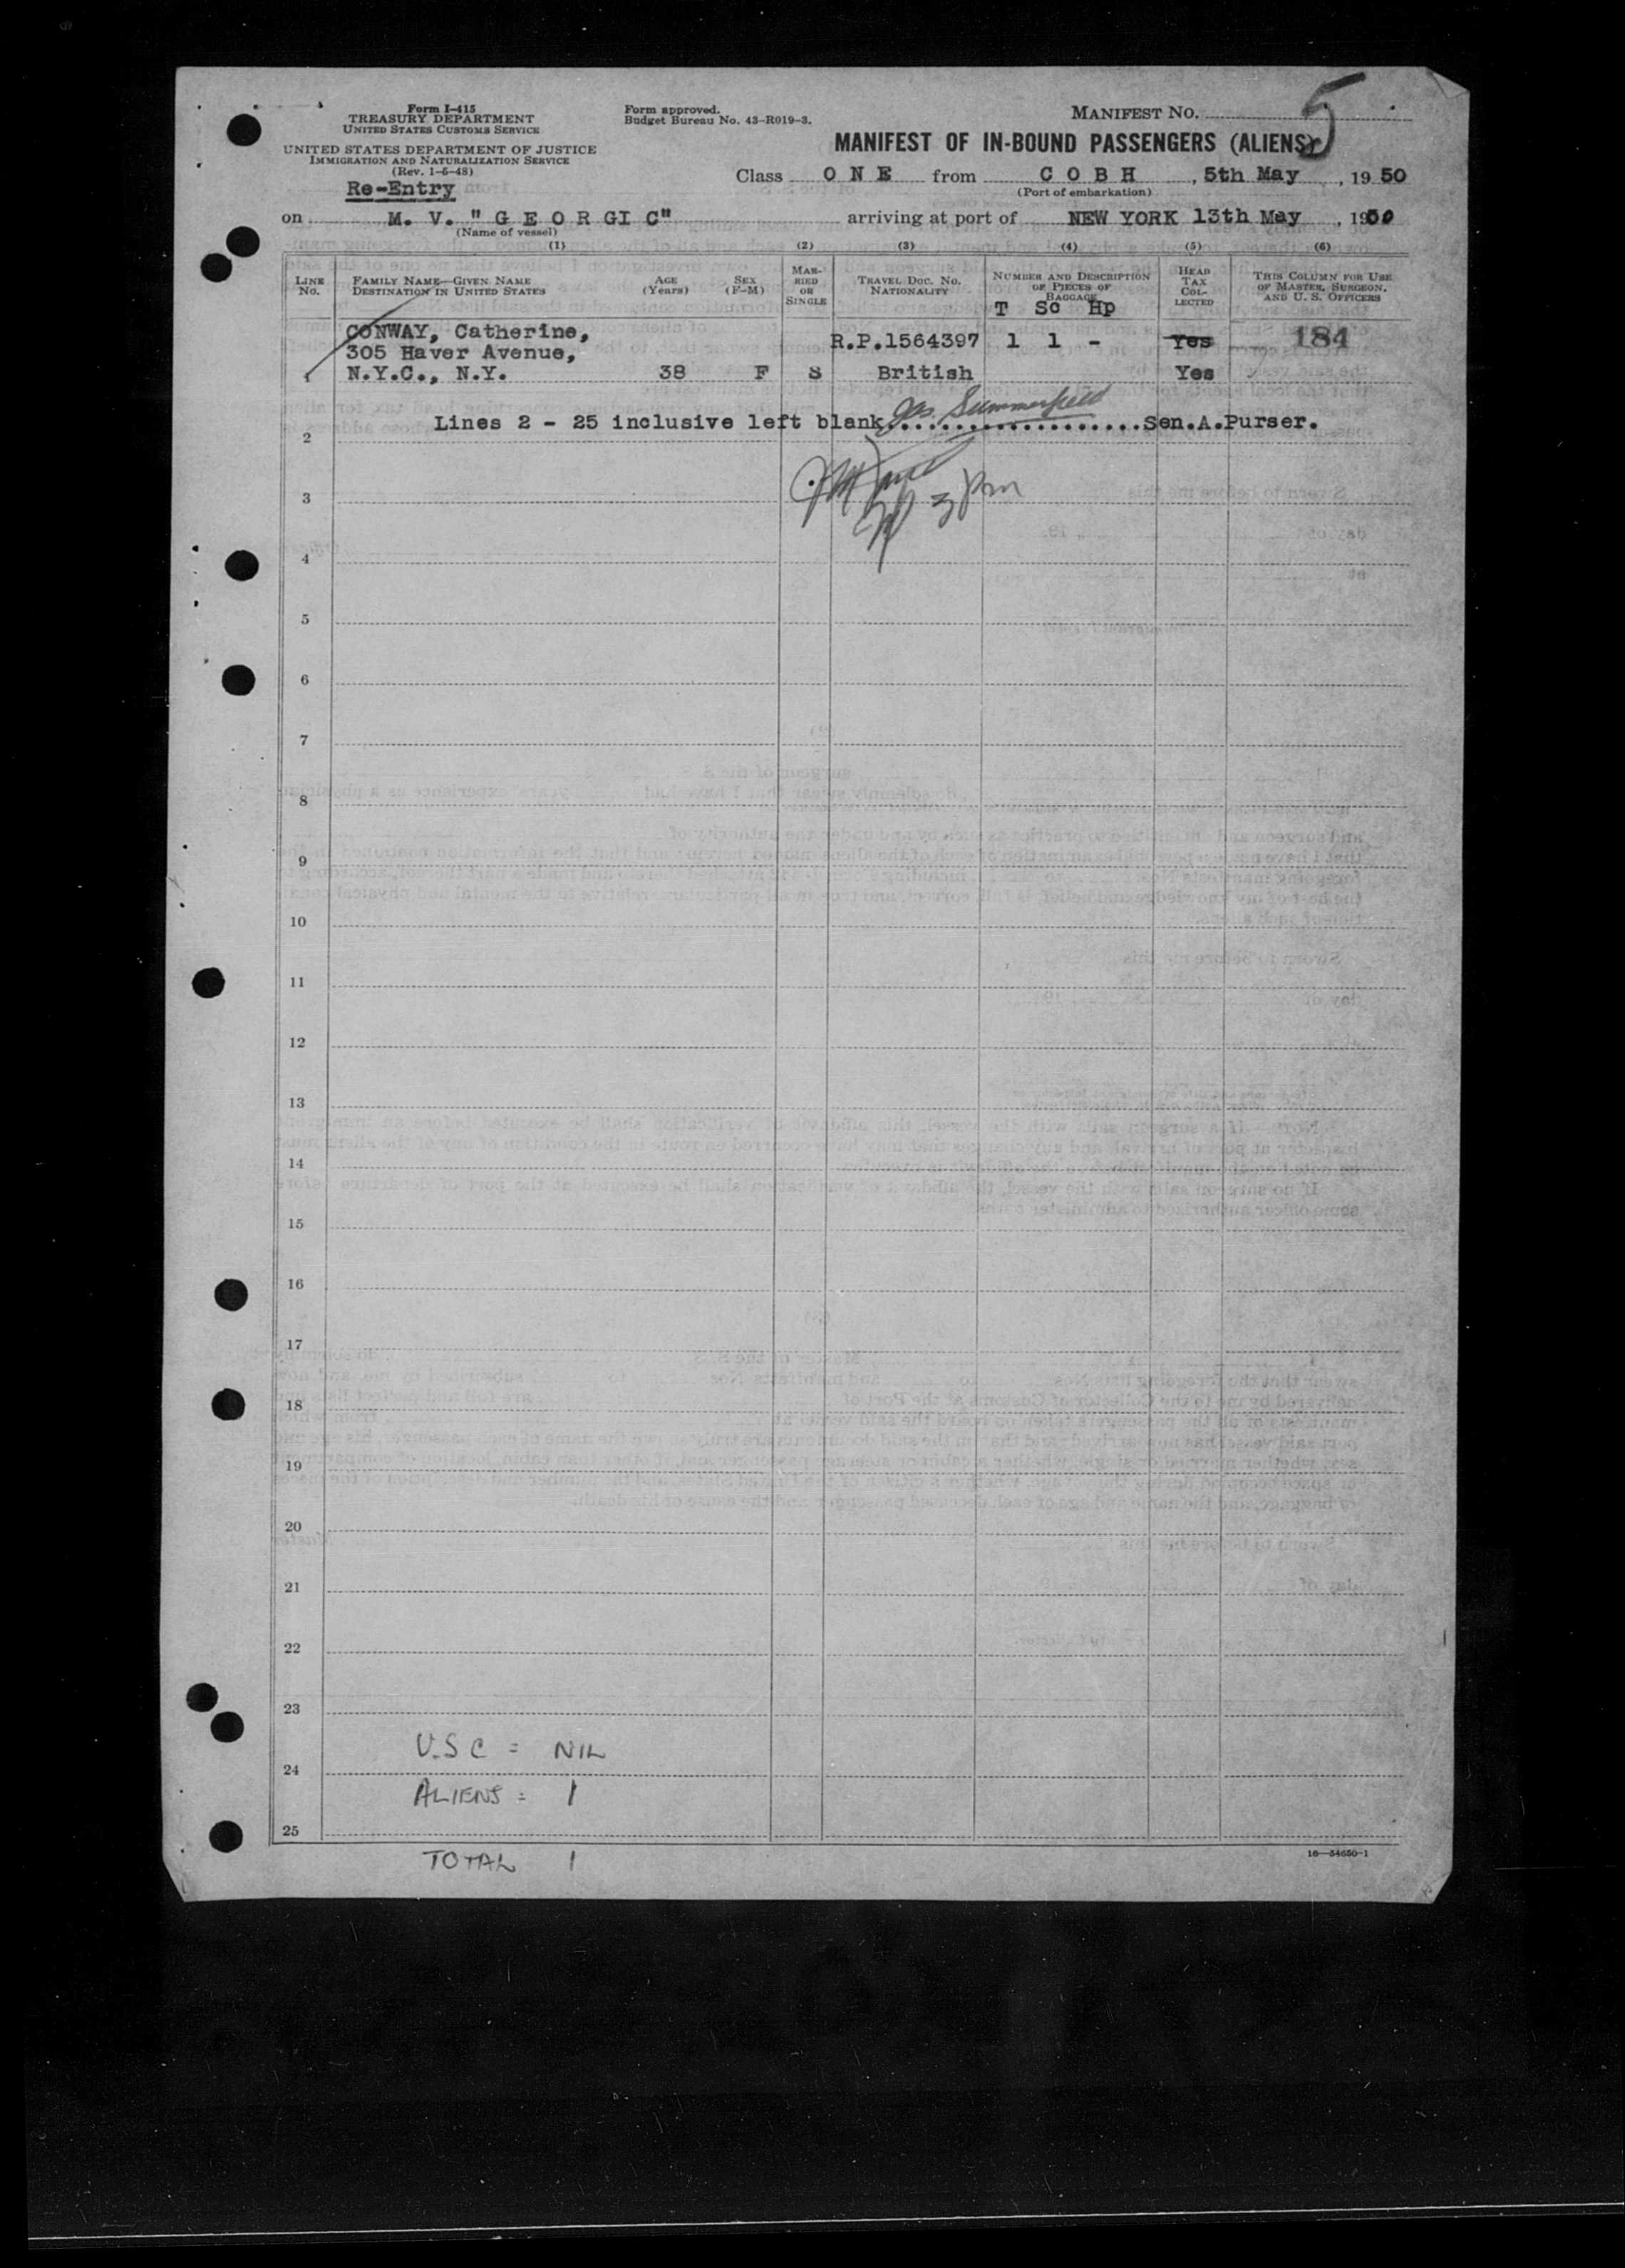 Form I-415
TREASURY DEPARTMENT
UNITED STATES CUSTOMS SERVICE
UNITED STATES DEPARTMENT OF JUSTICE
IMMIGRATION AND NATURALIZATION SERVICE
(Rev. 1-6-48)
Re-Entry
Form approved.
Budget Bureau No. 43-R019-3.
MANIFEST NO. 5
MANIFEST OF IN-BOUND PASSENGERS (ALIENS)
Class O N E from C O B H , 5th May , 19 50
(Port of embarkation)
on M. V. " G E O R G I C" arriving at port of NEW YORK 13th May , 1950
(Name of vessel)
(1) (2) (3) (4) (5) (6)
LINE No. FAMILY NAME—GIVEN NAME DESTINATION IN UNITED STATES AGE (Years) SEX (F-M) MARRIED OR SINGLE TRAVEL DOC. NO. NATIONALITY NUMBER AND DESCRIPTION OF PIECES OF BAGGAGE HEAD TAX COLLECTED THIS COLUMN FOR USE OF MASTER, SURGEON, AND U. S. OFFICERS
T Sc Hp
CONWAY, Catherine,
305 Haver Avenue, R.P.1564397 1 1 - Yes 184
1 N.Y.C., N.Y. 38 F S British Yes
Lines 2 - 25 inclusive left blank Jas. Summerfield Sen.A.Purser.
2
3 3 pm
4
5
6
7
8
9
10
11
12
13
14
15
16
17
18
19
20
21
22
23
U.S C = NIL
24
ALIENS = 1
25
TOTAL 1
16—54650-1